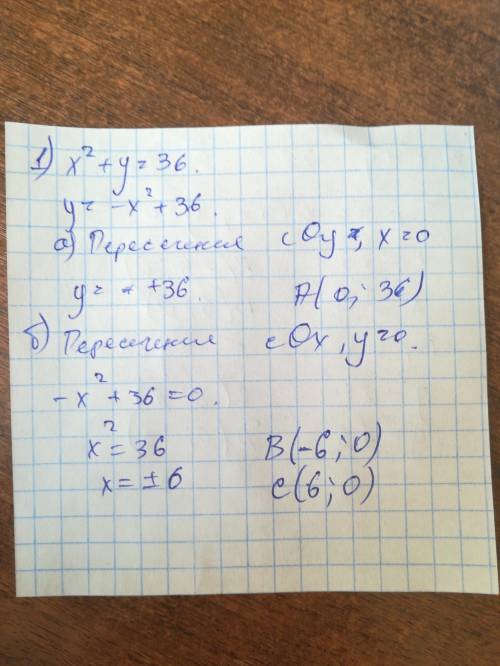 1) x² + y = 36.
y = -x² + 36.
а) Пересечения с Oy, x = 0
y = +36. A(0; 36)
б) Пересечения с Ox, y = 0.
-x² + 36 = 0.
x² = 36 B(-6; 0)
x = ±6 C(6; 0)